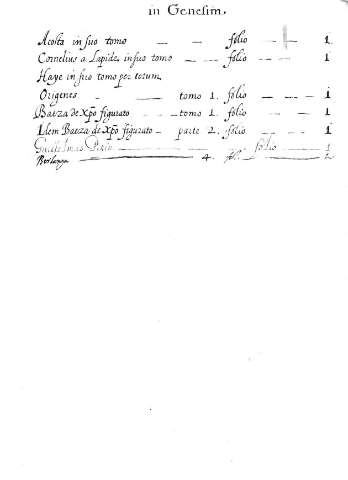 in Genesim.
Acosta in suo tomo — — folio — — 1.
Cornelius a Lapide in suo tomo — — folio — — 1
Haye in suo tomo per totum.
Origenes. — — tomo 1. folio — — 1
Baeza de xpõ figurato — — tomo 1. folio — — 1
Idem Baeza de xpõ figurato — parte 2. folio — — 1
folio — 1
4. fol. 2